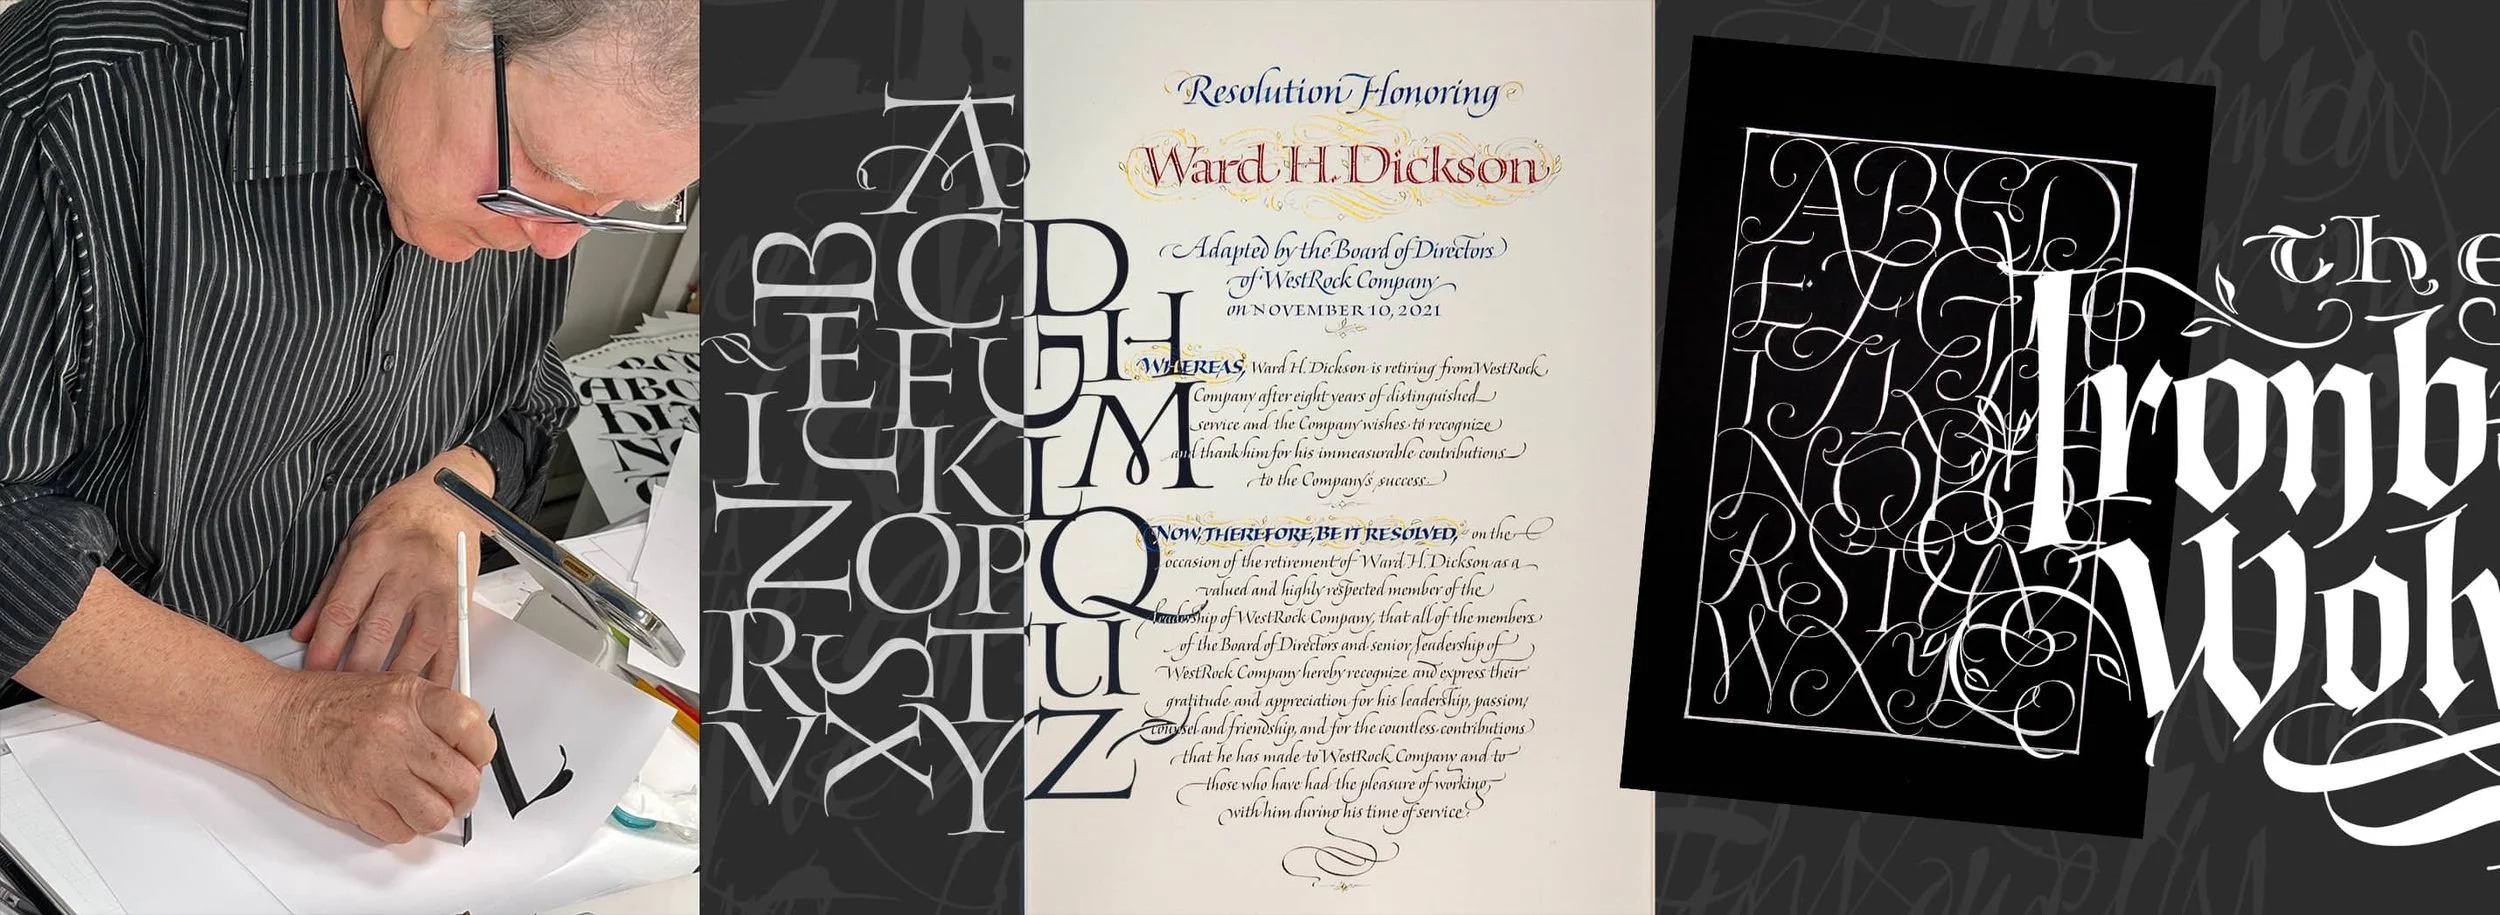 L
A
B C D
E F G H
I J K L M
N O P Q
R S T U
V X Y Z
Resolution Honoring
Ward H. Dickson
Adapted by the Board of Directors
of WestRock Company
on NOVEMBER 10, 2021
WHEREAS, Ward H. Dickson is retiring from WestRock
Company after eight years of distinguished
service and the Company wishes to recognize
and thank him for his immeasurable contributions
to the Company's success.
NOW, THEREFORE, BE IT RESOLVED, on the
occasion of the retirement of Ward H. Dickson as a
valued and highly respected member of the
leadership of WestRock Company, that all of the members
of the Board of Directors and senior leadership of
WestRock Company hereby recognize and express their
gratitude and appreciation for his leadership, passion,
counsel and friendship, and for the countless contributions
that he has made to WestRock Company and to
those who have had the pleasure of working
with him during his time of service.
A B C D
the
Ironb
Woh